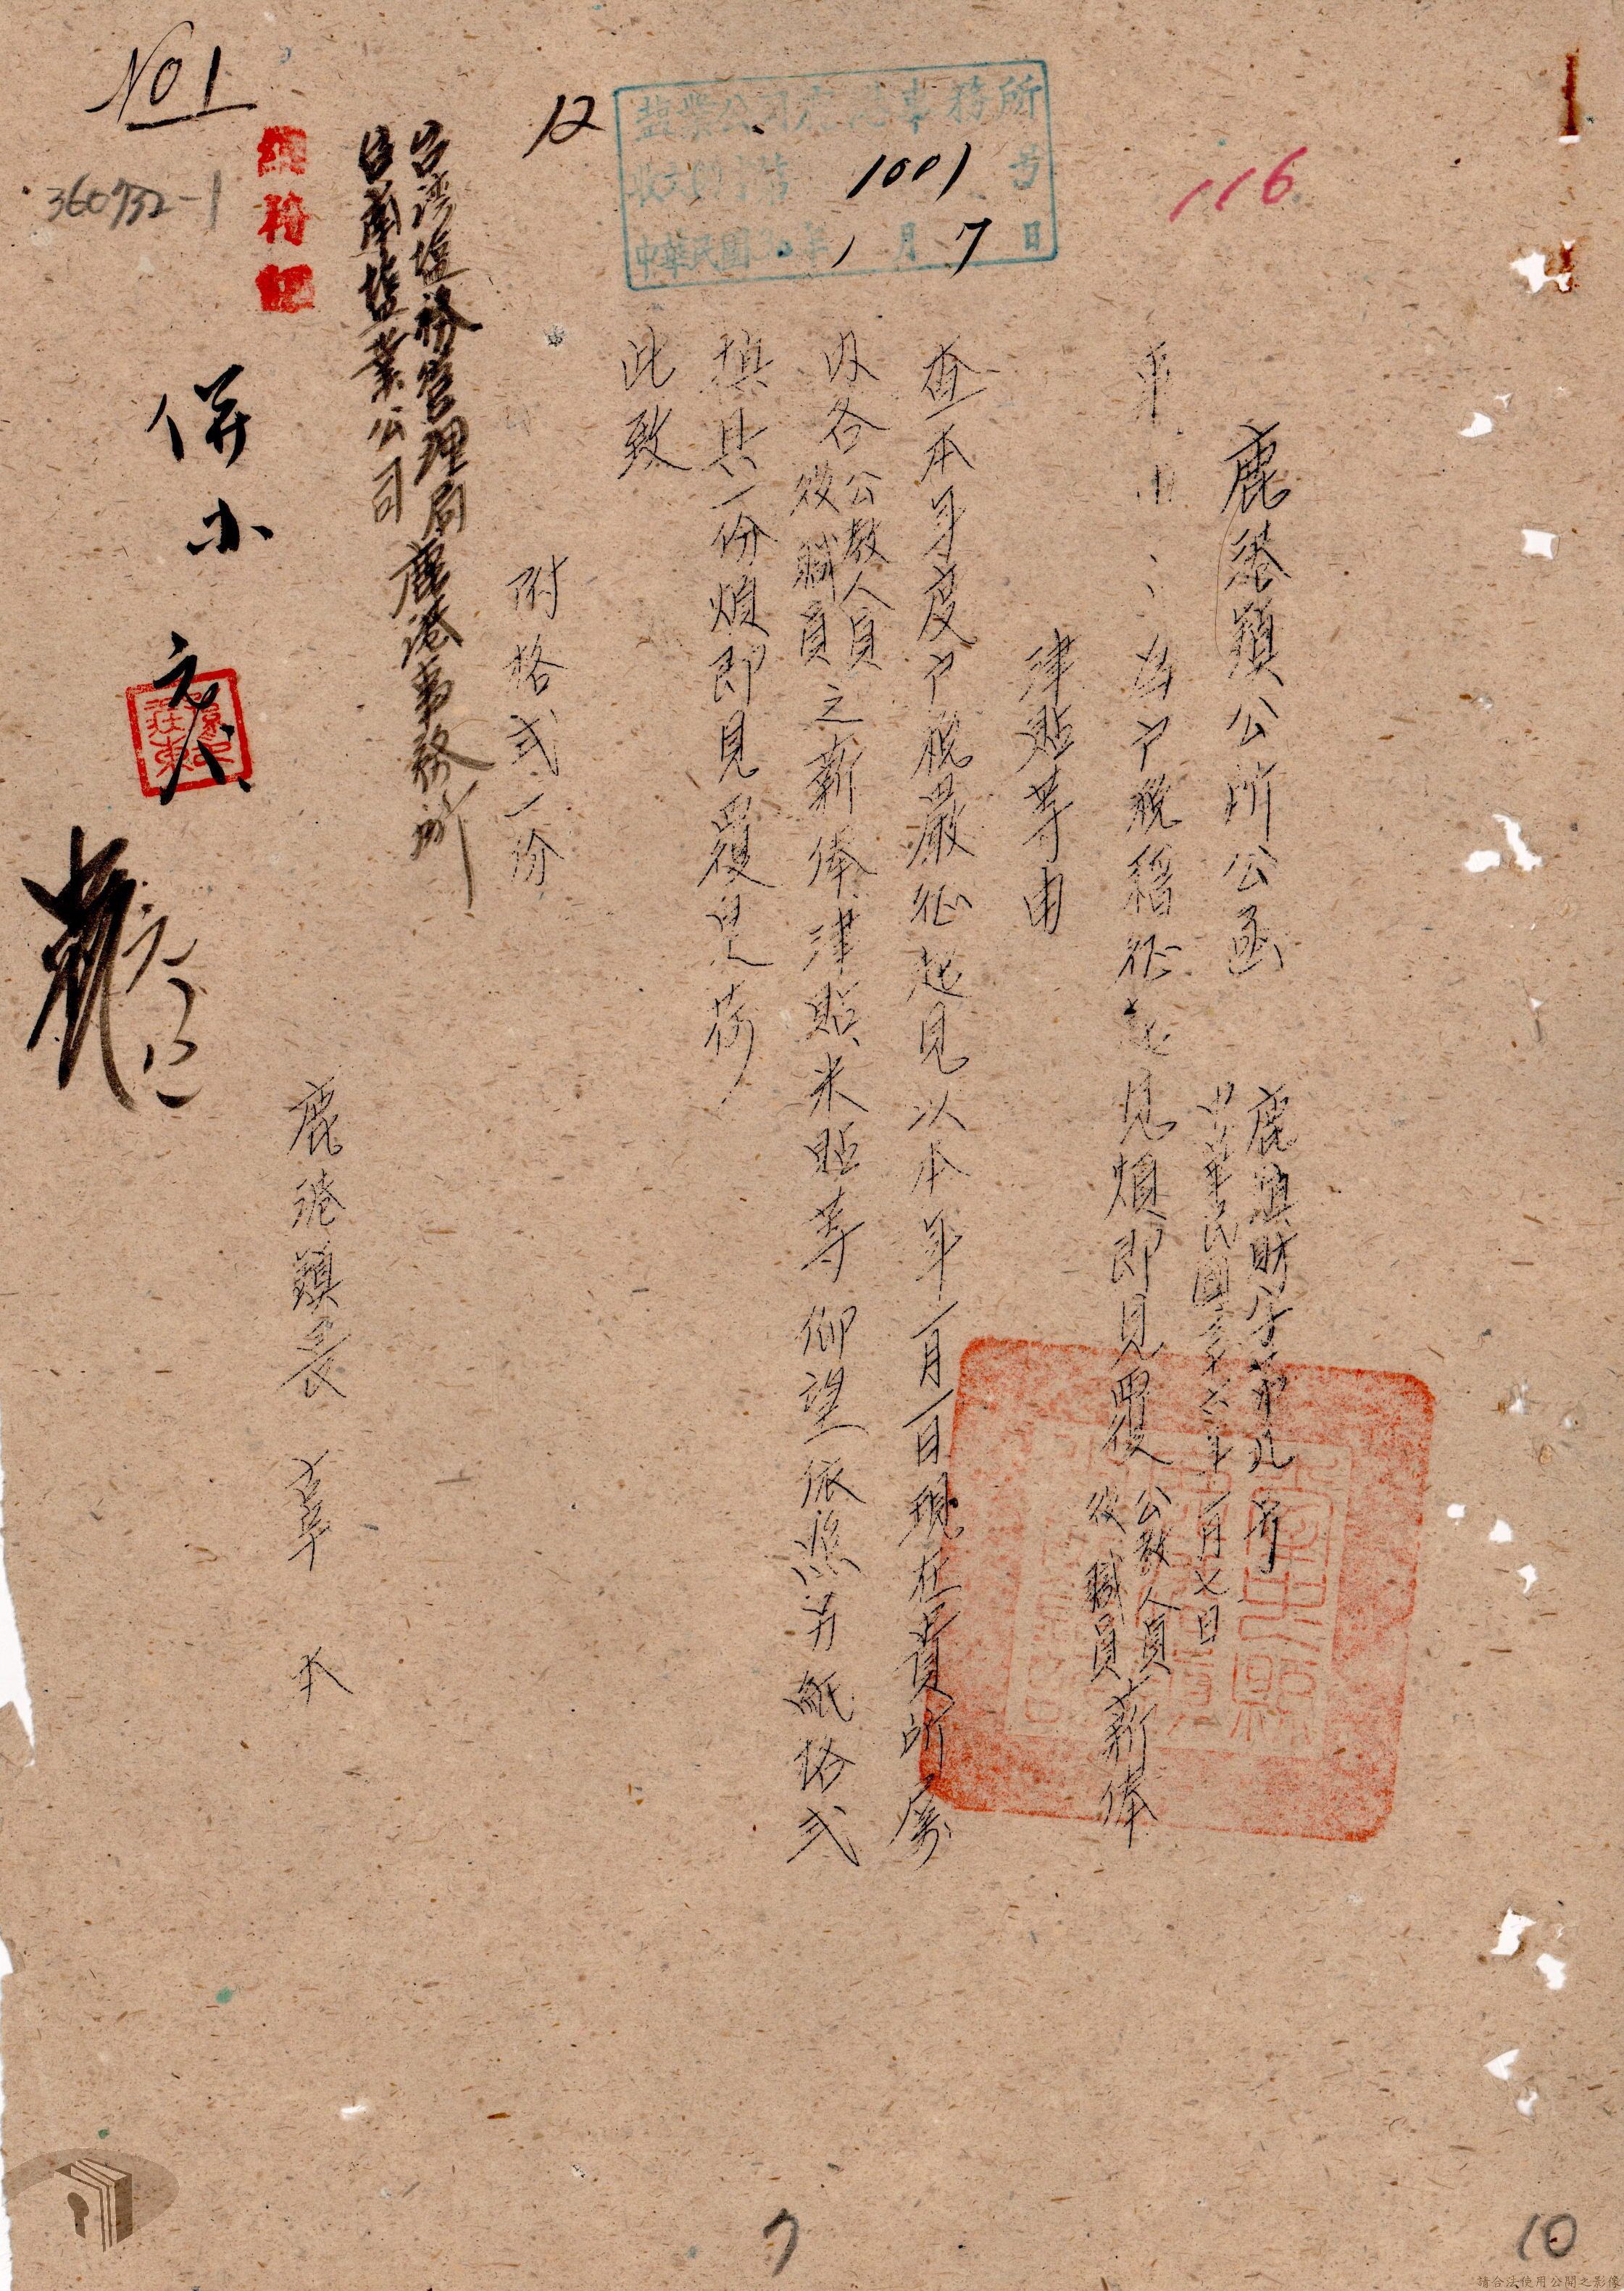 鹿港鎮公所公函
鹿鎮財字第九号
中華民國三十六年一月七日
事由：為户稅稽征起見煩即見覆公教人員役職員薪俸
津貼等由
查本年度户稅嚴征起見以本年一月一日現在貴所屬
内各公教人員役職員之薪俸津貼米貼等仰望依照另紙格式
填具一份煩即見覆是荷
此致
附格式一份
台湾塩務管理局
台南塩業公司
鹿港事務所
鹿港鎮長 辜
塩業公司鹿港事務所
收文
1001号
中華民國 年1月7日
116
12
No 1
360732-1
併小
元
7
10
請合法使用公開之影像